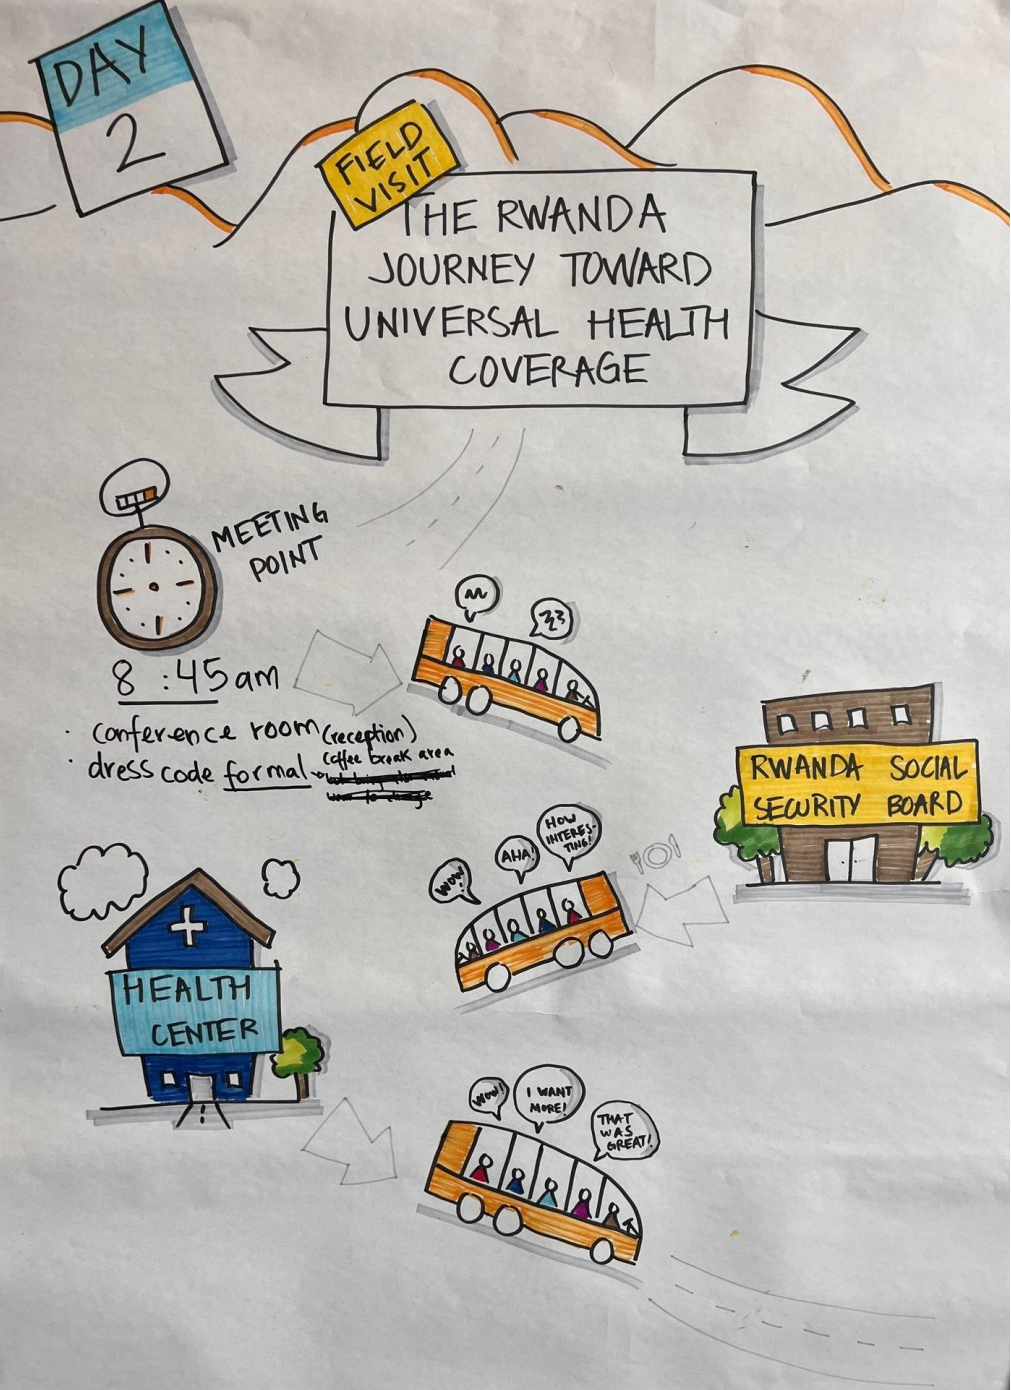 DAY
2
FIELD
VISIT
THE RWANDA
JOURNEY TOWARD
UNIVERSAL HEALTH
COVERAGE
MEETING
POINT
8:45am
· conference room (reception)
coffee break area
· dress code formal
RWANDA SOCIAL
SECURITY BOARD
WOW!
AHA!
HOW
INTERES-
TING!
HEALTH
CENTER
WOW!
I WANT
MORE!
THAT
WAS
GREAT!